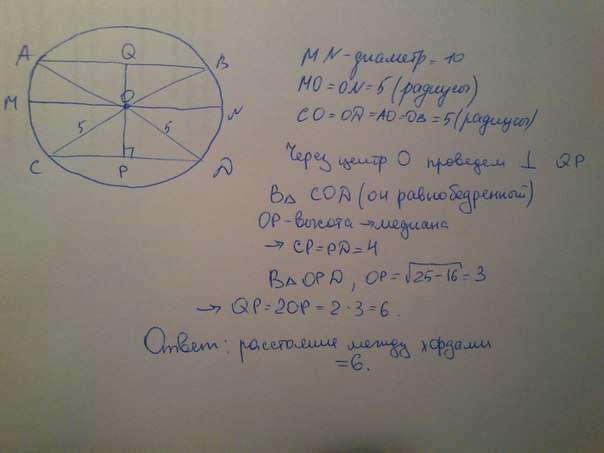 A
Q
B
M
O
N
5
5
C
P
D
MN-диаметр = 10
MO=ON=5 (радиусы)
CO=OD=AO=OB=5 (радиусы)
Через центр O проведем ⊥ QP
В△ COD (он равнобедренный)
OP-высота →медиана
→ CP=PD=4
В△ OPD, OP=√25-16=3
→ QP=2OP=2·3=6.
Ответ: расстояние между хордами
=6.